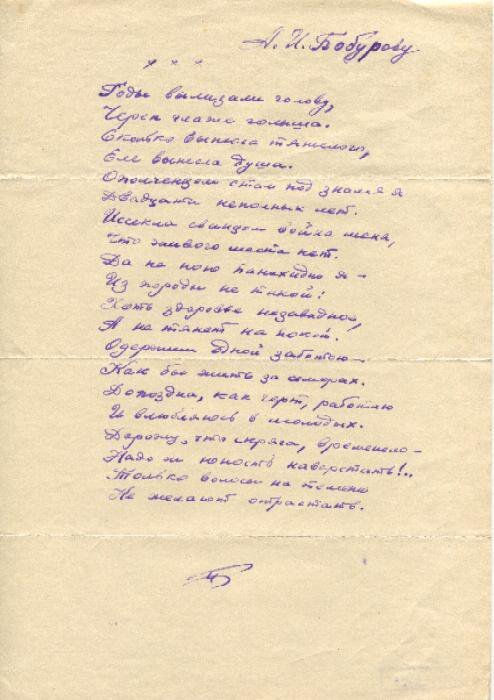 А. И. Бобурову
* * *
Годы вылизали голову,
Череп глаже голыша.
Сколько вынесла тяжелого,
Еле вынесла душа.
Ополченцем стал под знамя я
Двадцати неполных лет.
Иссекла свинцом война меня,
Что живого места нет.
Да не пою панихидно я –
Из породы не такой!
Хоть здоровье незавидное,
А не тянет на покой.
Одержим одной заботою –
Как бы жить за семерых.
Допоздна, как черт, работаю
И влюбляюсь в молодых.
Дорожу, что скряга, временем –
Надо ж юность наверстать!..
Только волосы на темени
Не желают отрастать.